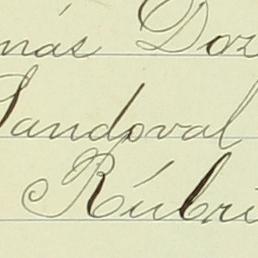 más Doz
Sandoval
Rúbri